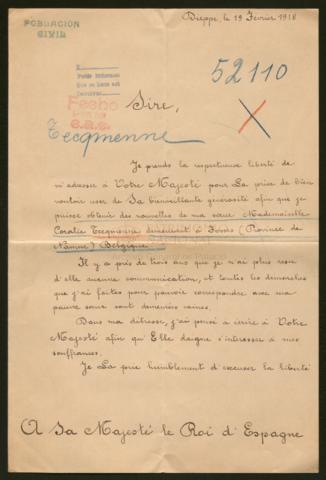 Dieppe, le 19 Février 1918
POBLACION
CIVIL
52110
Fecho
Sire,
Tecqmenne
Je prends la respectueuse liberté de
m'adresser à Votre Majesté pour La prier de bien
vouloir user de Sa bienveillante générosité afin que je
puisse obtenir des nouvelles de ma sœur Mademoiselle
Coralie Tecqmenne demeurant à Fosses (Province de
Namur) Belgique.
Il y a près de trois ans que je n'ai plus reçu
d'elle aucune communication, et toutes les démarches
que j'ai faites pour pouvoir correspondre avec ma
pauvre sœur sont demeurées vaines.
Dans ma détresse, j'ai pensé à écrire à Votre
Majesté afin qu'Elle daigne s'intéresser à mes
souffrances.
Je La prie humblement d'excuser la liberté
A Sa Majesté le Roi d'Espagne